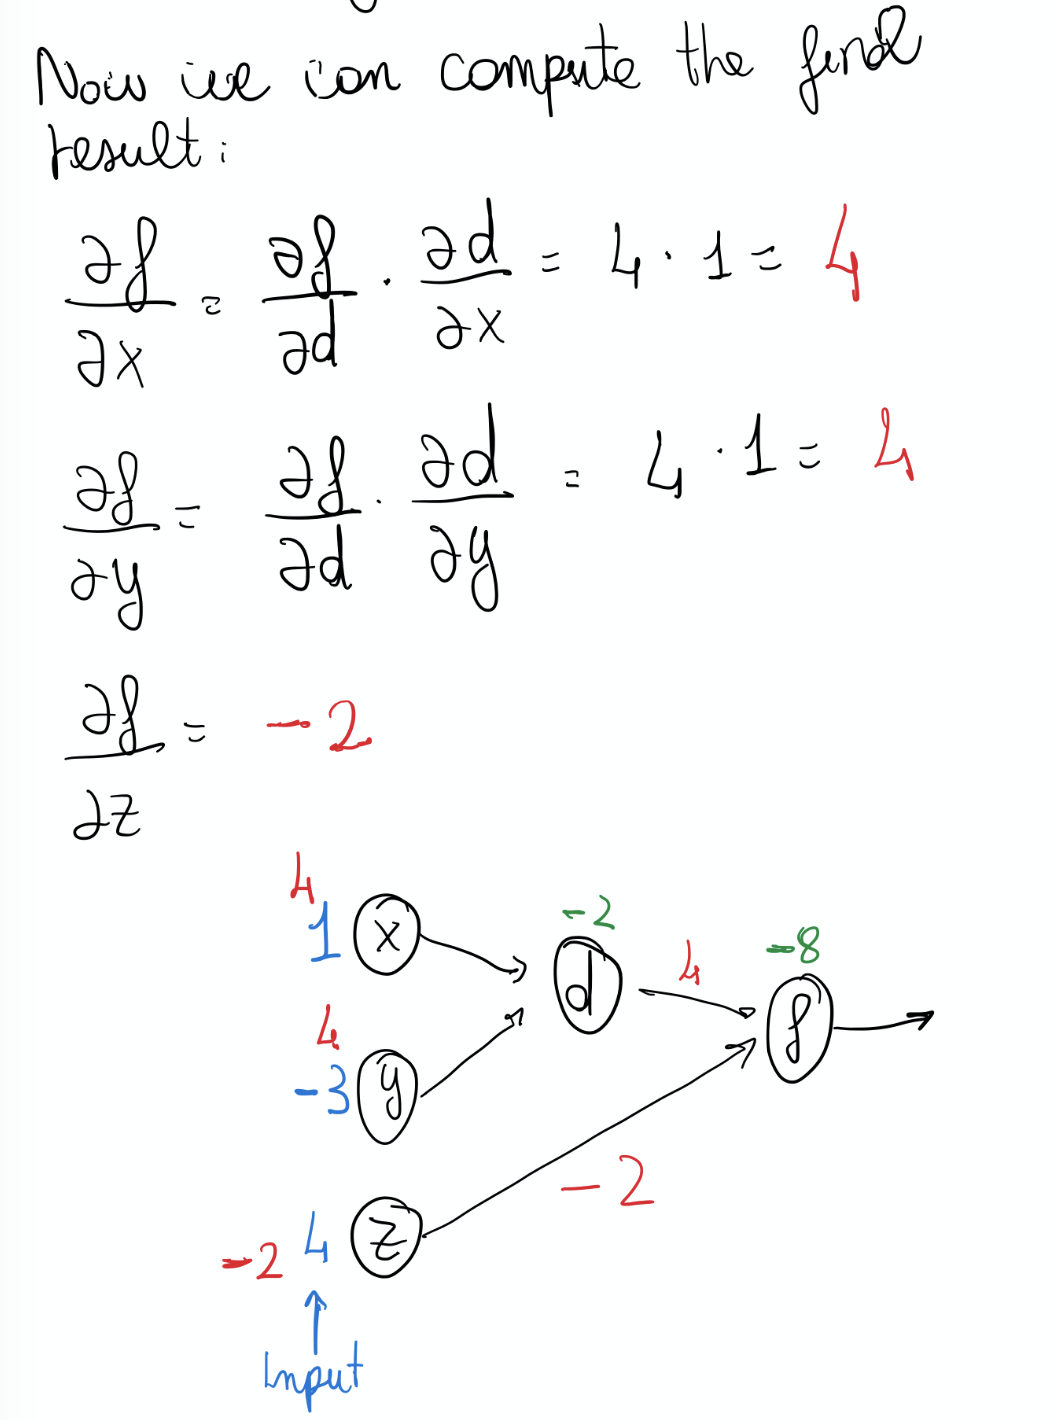 Now we can compute the final
result:
∂f/∂x = ∂f/∂d · ∂d/∂x = 4 · 1 = 4
∂f/∂y = ∂f/∂d · ∂d/∂y = 4 · 1 = 4
∂f/∂z = -2
4
1 x
-2
d
4
-8
f
4
-3 y
-2
-2 4 z
Input